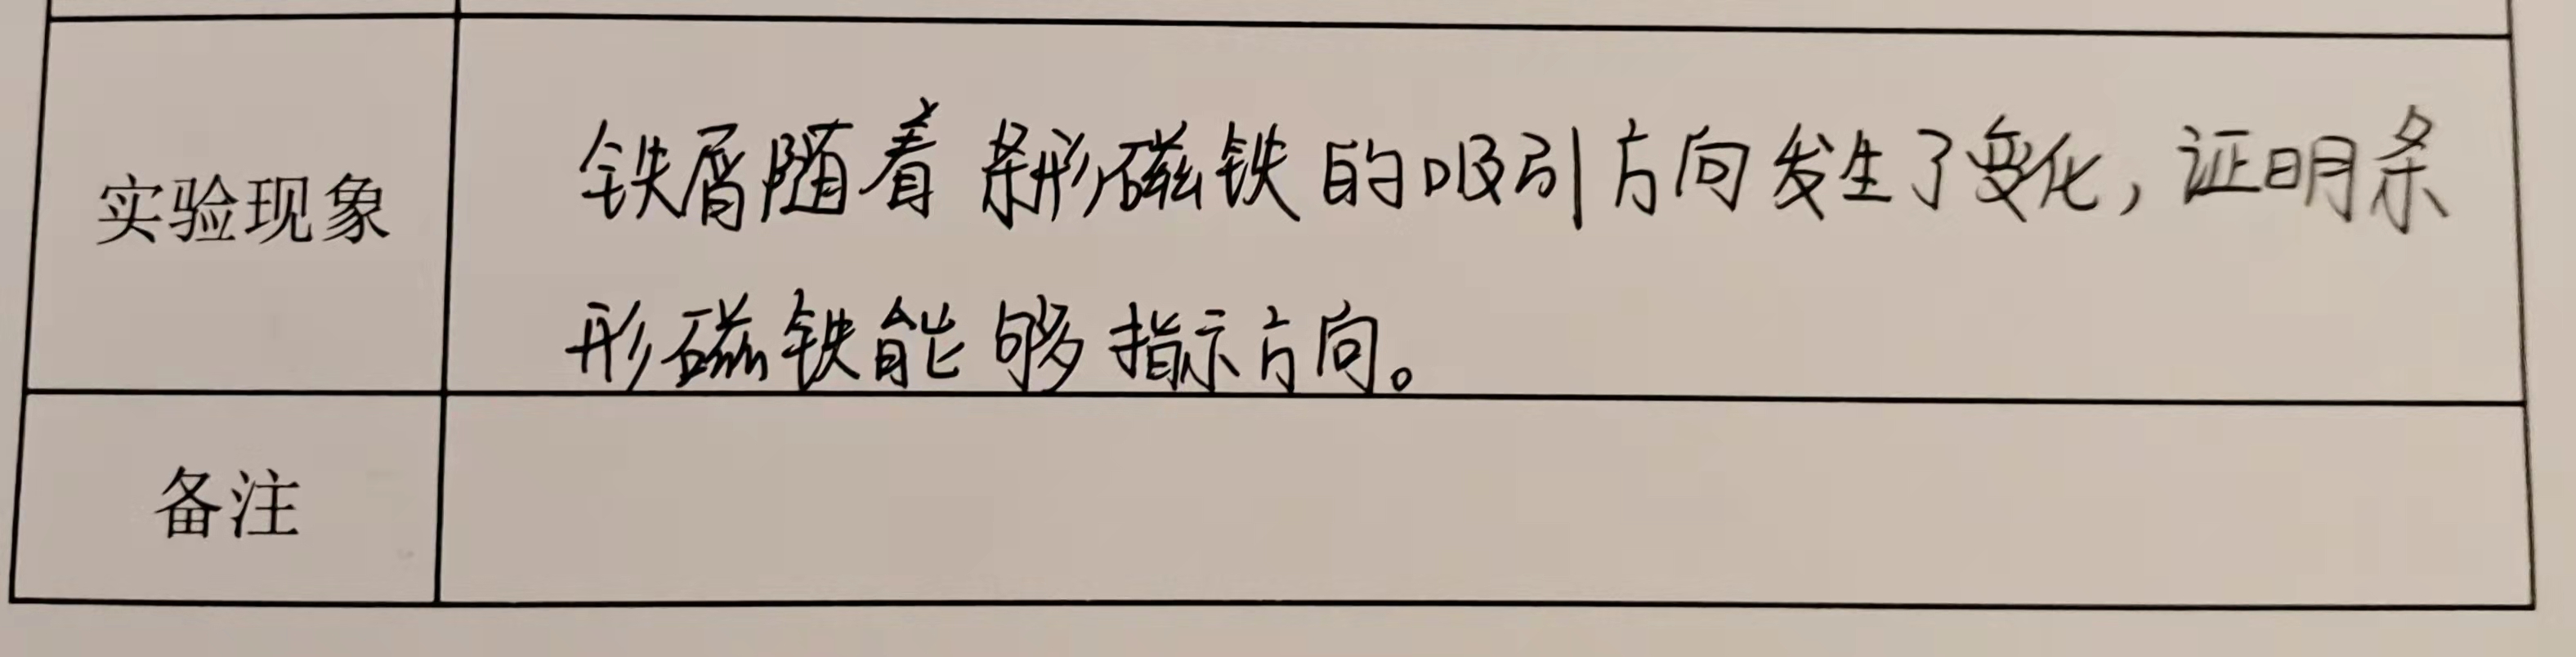 实验现象
铁屑随着条形磁铁的吸引方向发生了变化，证明条
形磁铁能够指示方向。
备注